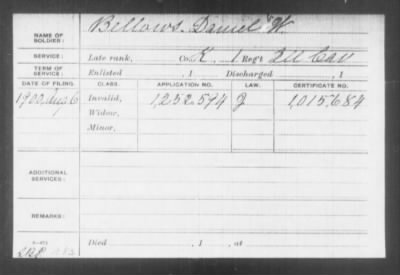 NAME OF SOLDIER: Bellows, Daniel W.
SERVICE: Late rank, Co. K, 1 Reg't Ill Cav
TERM OF SERVICE: Enlisted , 1 Discharged , 1
DATE OF FILING. CLASS. APPLICATION NO. LAW. CERTIFICATE NO.
1900 Aug 6 Invalid, 1,252,594 J 1,015,684
Widow,
Minor,
ADDITIONAL SERVICES:
REMARKS:
Died , 1 , at